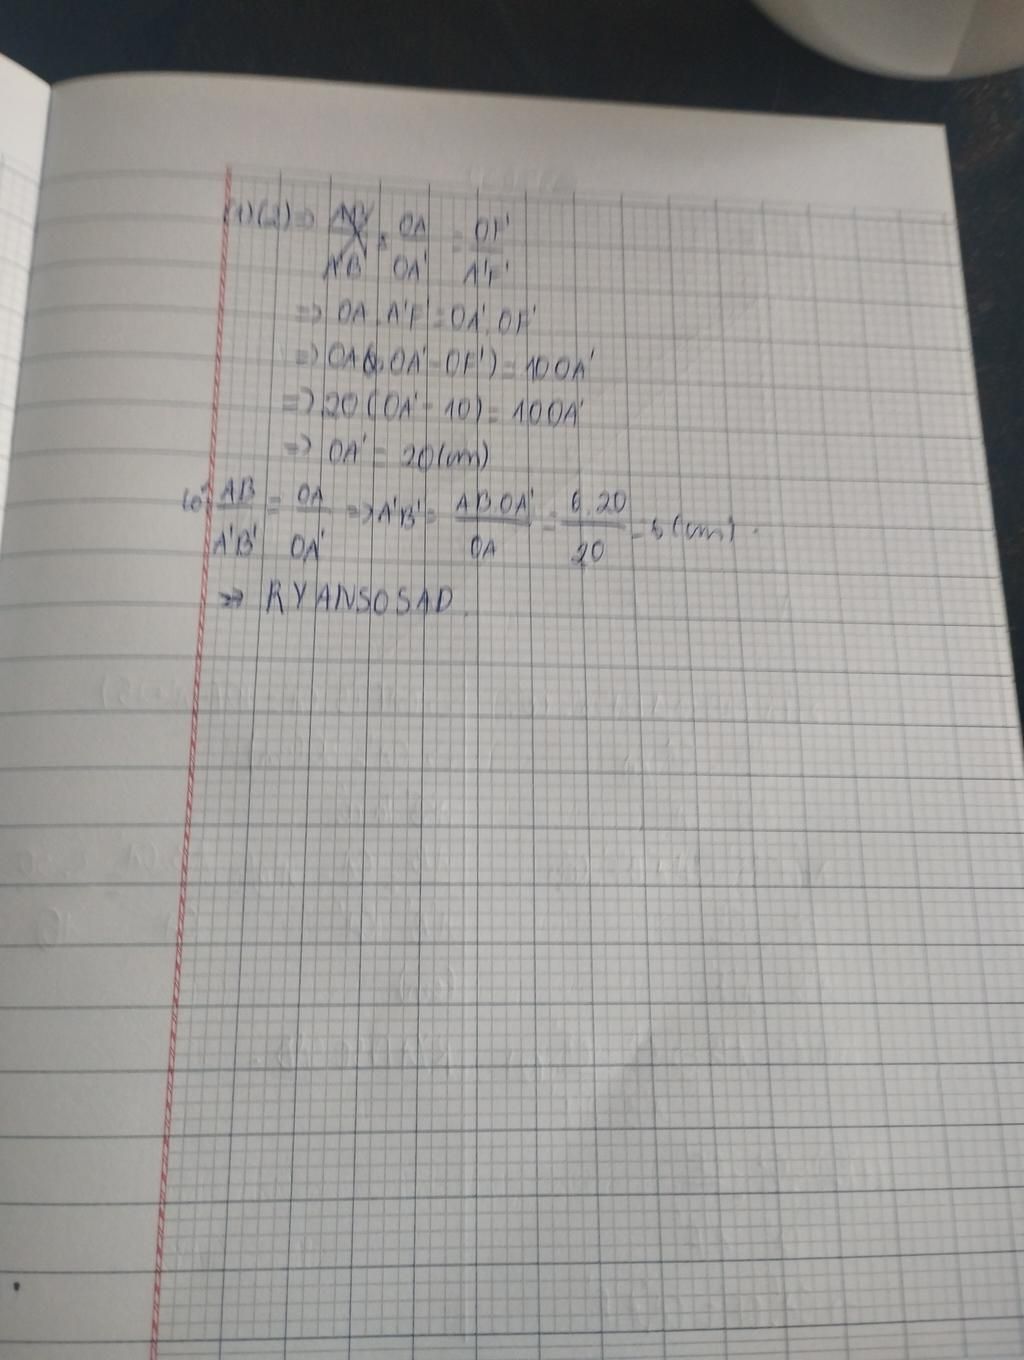 (1)(2) => AB/A'B' = OA/OA' = OF'/A'F'
=> OA.A'F' = OA'.OF'
=> OA(OA' - OF') = 10OA'
=> 20(OA' - 10) = 10OA'
=> OA' = 20(cm)
có AB/A'B' = OA/OA' => A'B' = AB.OA'/OA = 6.20/20 = 6(cm).
=> RYANSOSAD.